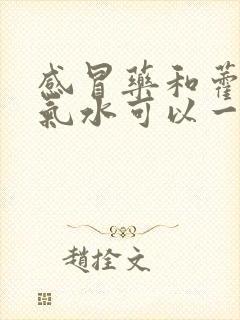 感冒藥和藿
氣水可以一
趙拴文